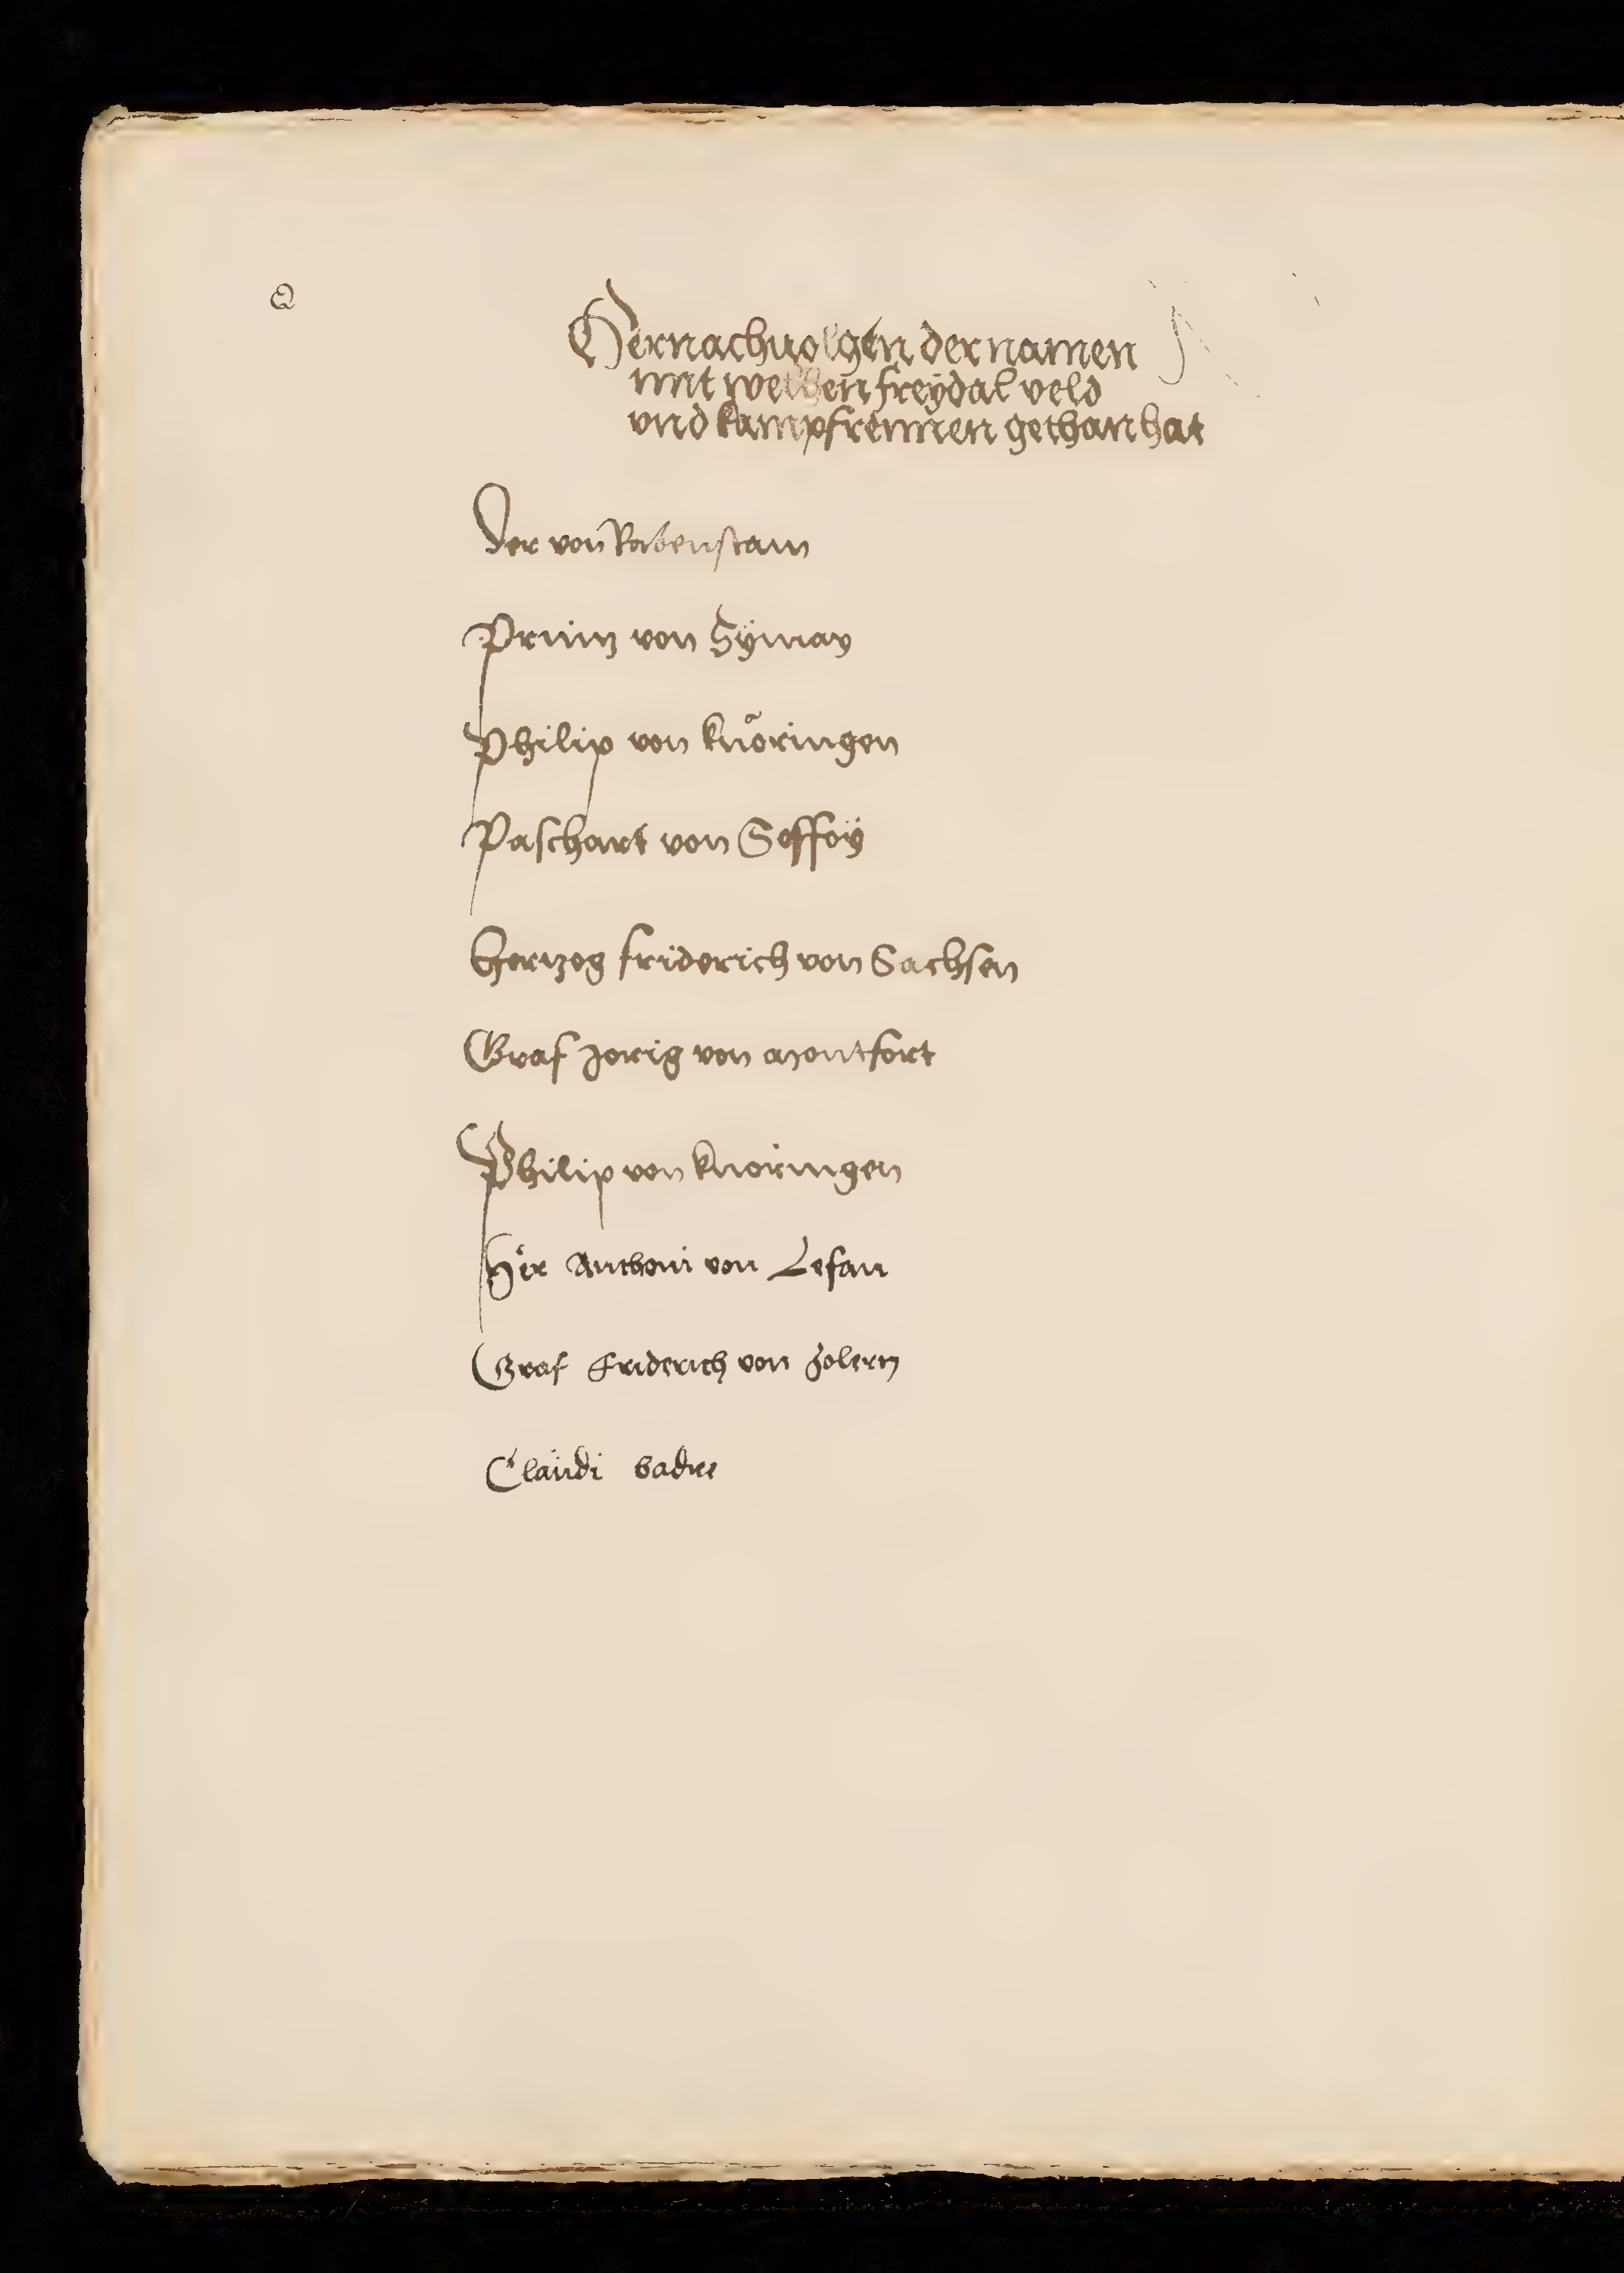 Q
Hernachuolgen der namen
mit welhen freÿdal veld
vnd kampfrennen gethan hat
Der von Rabenstain
Prinz von Symay
Philip von knöringen
Paschart von Seffoÿ
Hertzog friderich von Sachsen
Graf Jorig von montfort
Philip von knoringen
Her Anthoni von Lefan
Graf Friderich von Zolern
Claudi badre